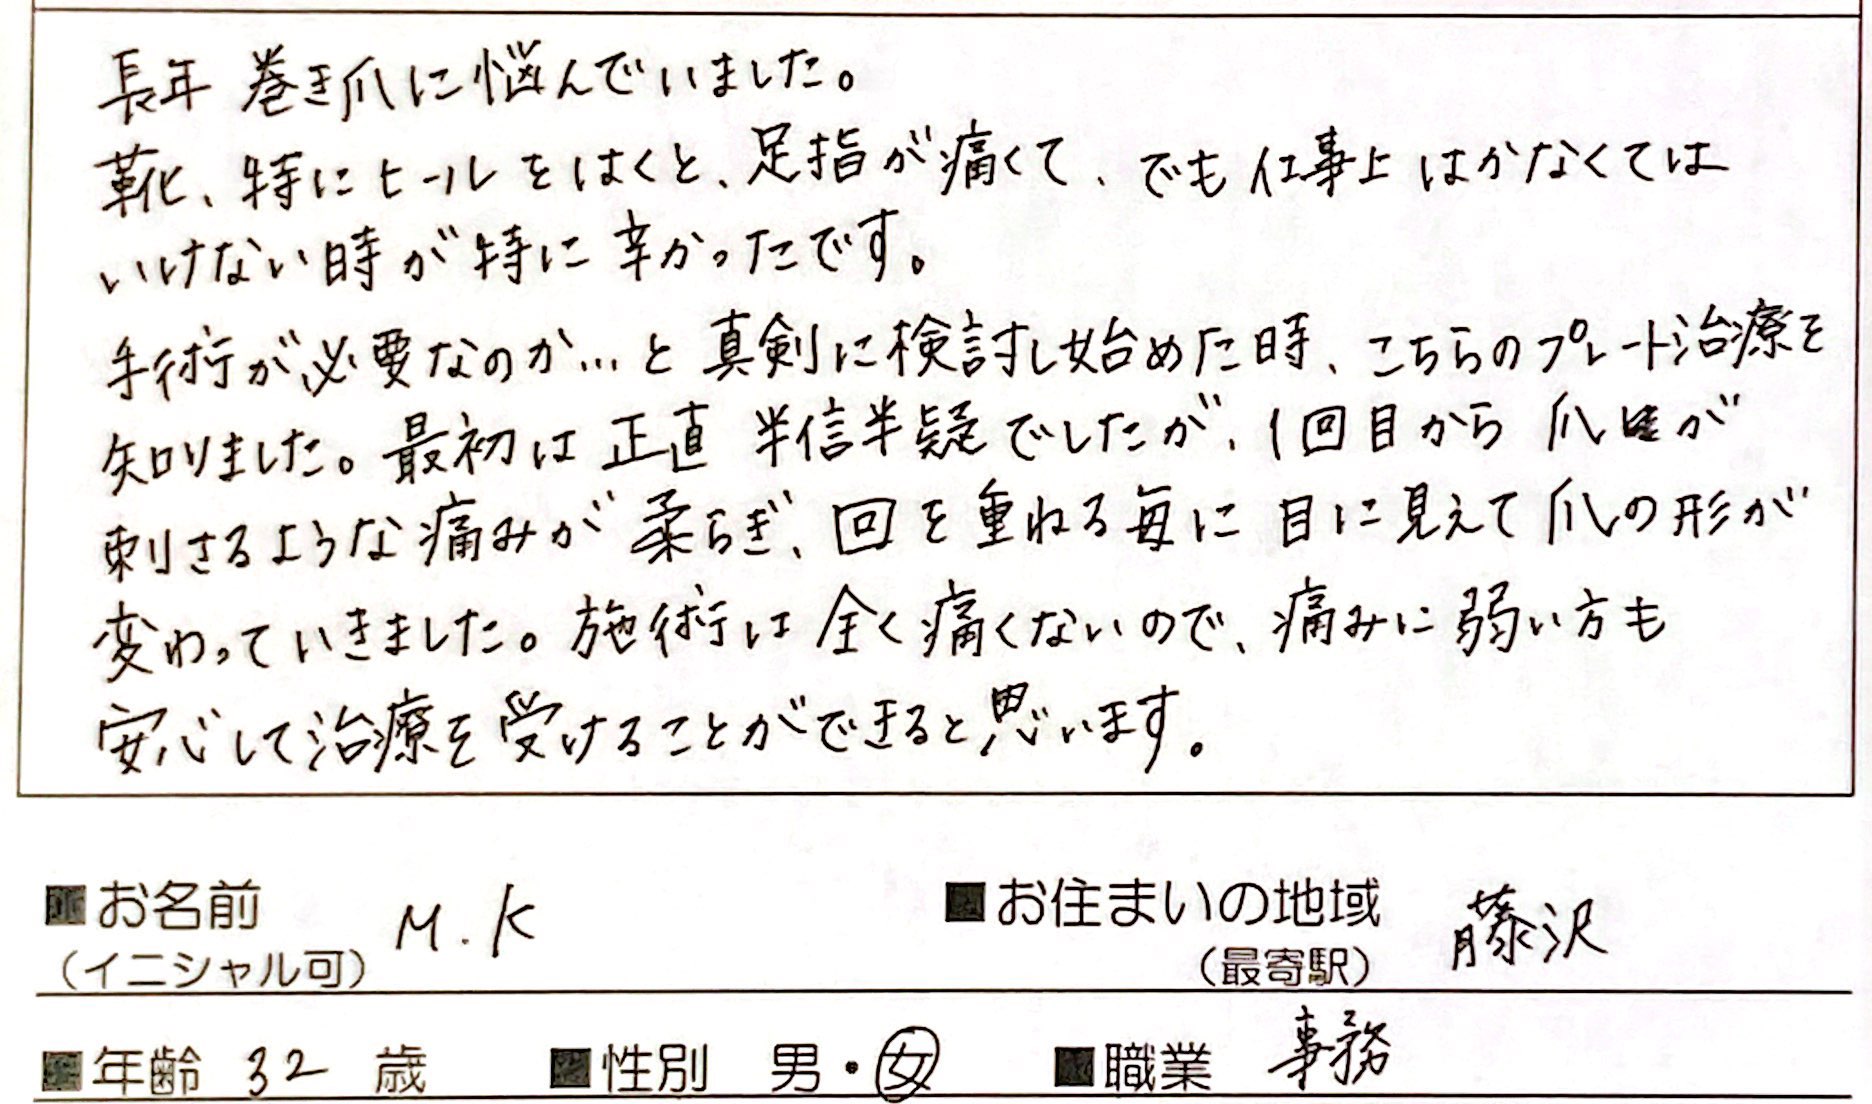 長年 巻き爪に悩んでいました。
靴、特にヒールをはくと、足指が痛くて、でも仕事上はかなくては
いけない時が特に辛かったです。
手術が必要なのか…と真剣に検討し始めた時、こちらのプレート治療を
知りました。最初は正直 半信半疑でしたが、1回目から 爪が
刺さるような痛みが柔らぎ、回を重ねる毎に目に見えて爪の形が
変わっていきました。施術は全く痛くないので、痛みに弱い方も
安心して治療を受けることができると思います。
■お名前 M.K ■お住まいの地域 藤沢
（イニシャル可） （最寄駅）
■年齢 32 歳 ■性別 男・女 ■職業 事務